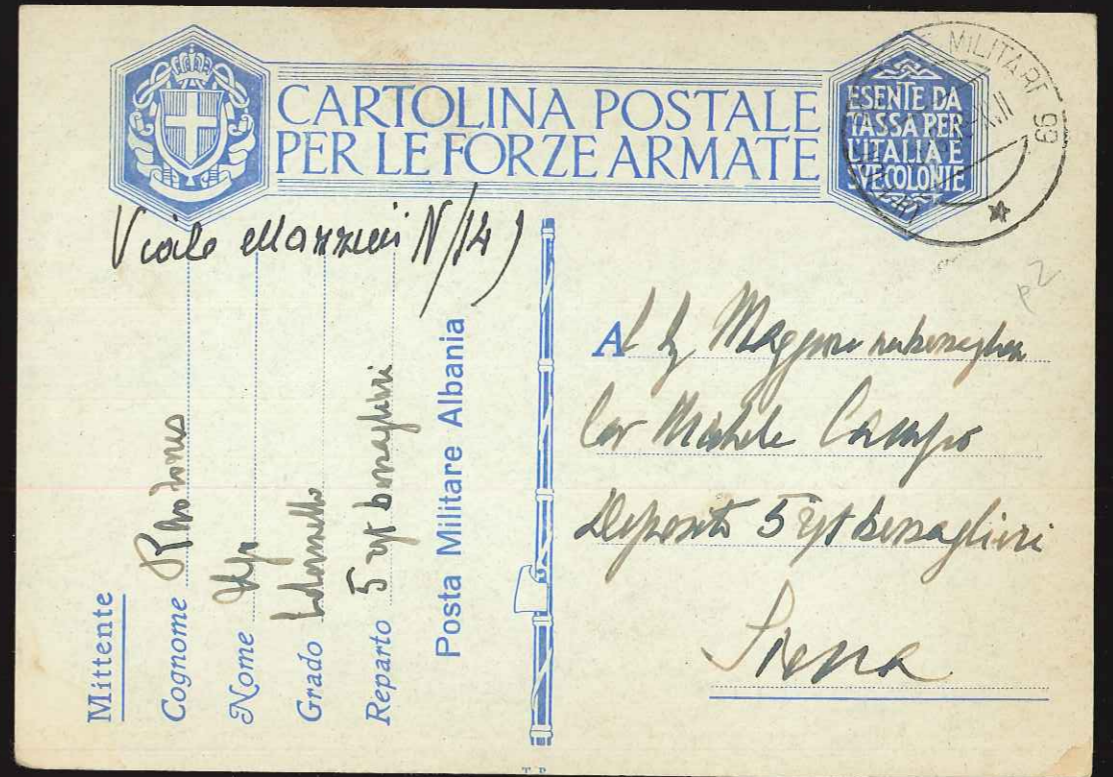 CARTOLINA POSTALE
PER LE FORZE ARMATE
ESENTE DA
TASSA PER
L'ITALIA E
SVE COLONIE
MILITARE 99
Viale Mazzini N/14
p2
Mittente
Cognome
Nome Ugo
Grado Colonnello
Reparto 5 rgt bersaglieri
Posta Militare Albania
Al Maggiore
Cav Michele Campo
Deposito 5 rgt bersaglieri
Siena
T P